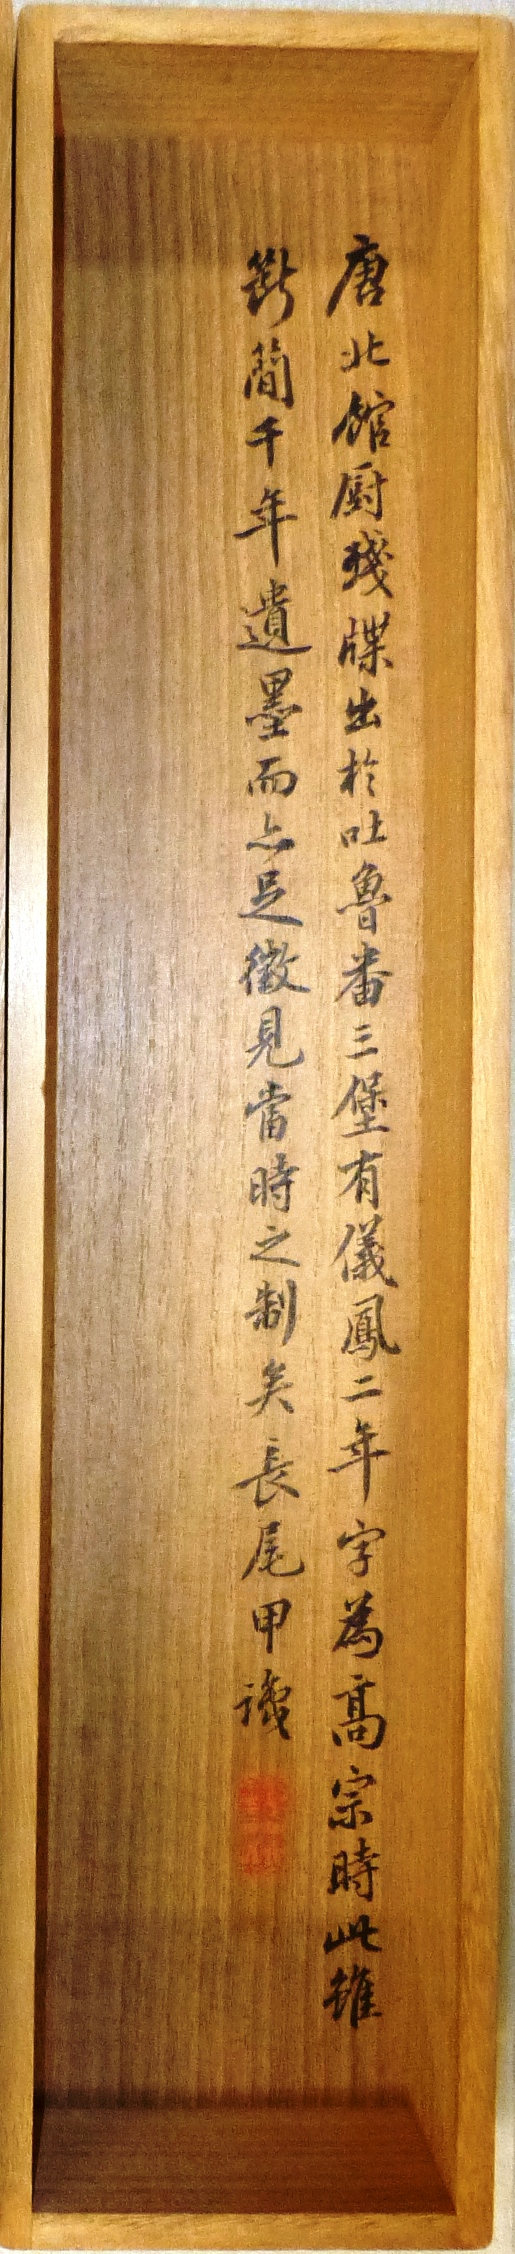 唐北館厨殘牒出於吐魯番三堡有儀鳳二年字為高宗時此雖
斷簡千年遺墨而亦足徵見當時之制矣長尾甲識